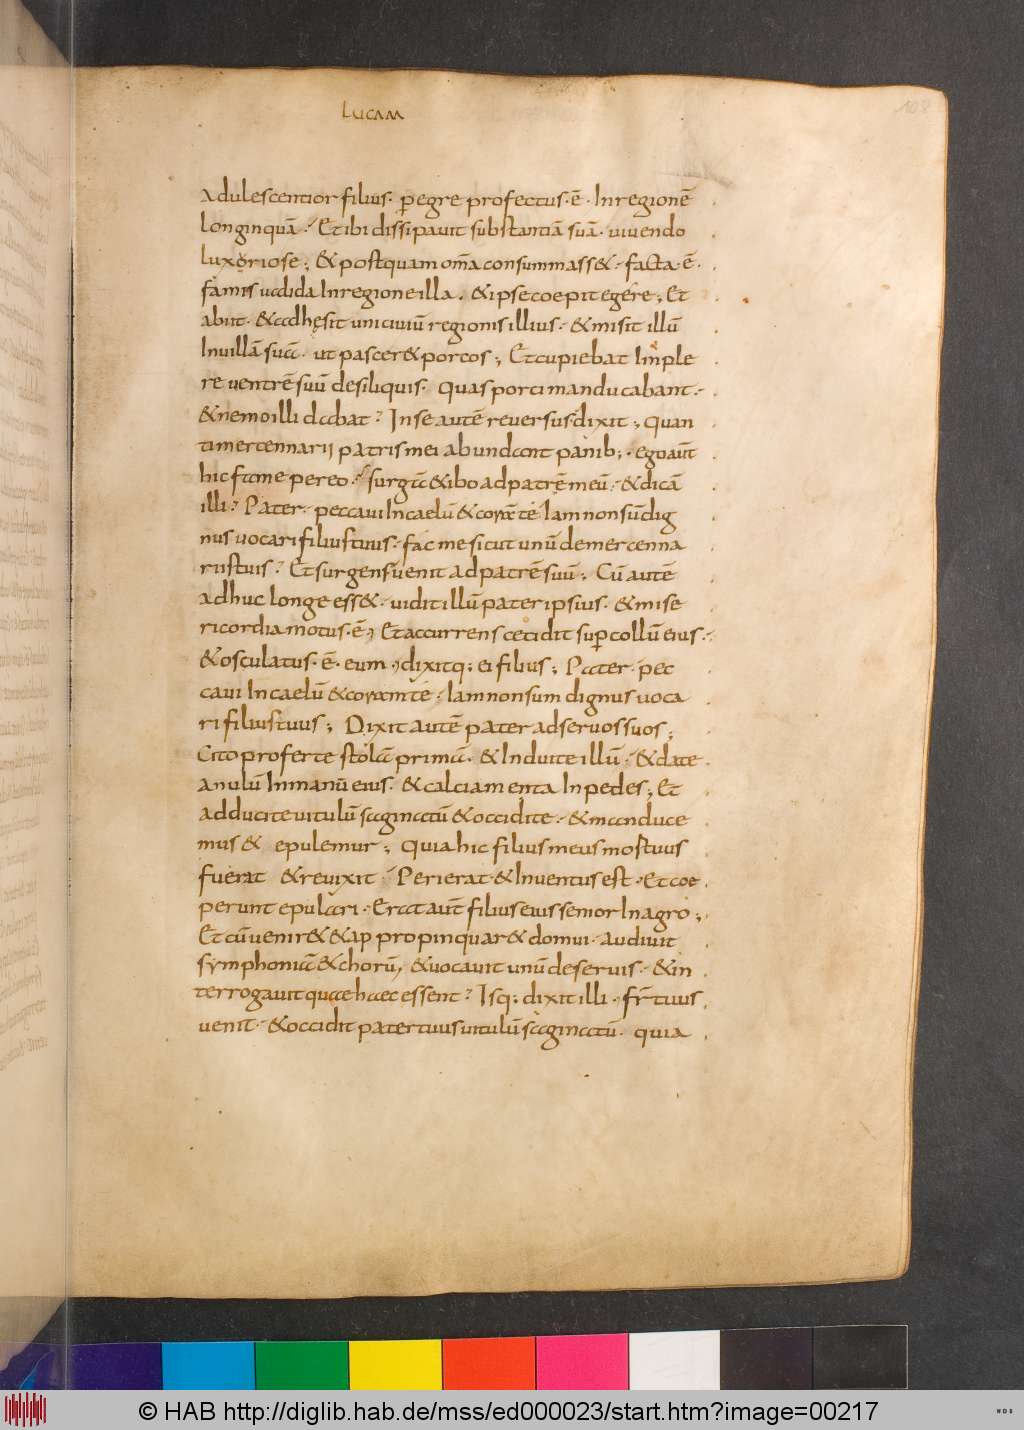 LUCAM
108
Adulescentior filius· p̄egre profectus· ē· In regionē
longinquā· Et ibi dissipauit substantiā suā· uiuendo
luxoriose; & postquam om̄a consummass&· facta· ē·
famis ualida In regione illa· & ipse coepit egere; Et
abiit· & adhęsit uni ciuiū regionis illius· & misit illū
In uillā suā· ut pascer& porcos; Et cupiebat Imple
re uentrē suū de siliquis· quas porci manducabant·
& nemo illi dabat· In se autē reuersus dixit; Quan
ti mercennarii patris mei abundant panib;· ego aūt
hic fame pereo· surgā & ibo ad patrē meū· & dicā
illi· Pater· peccaui In caelū & corā te Iam non sū dig
nus uocari filius tuus· fac me sicut unū de mercenna
riis tuis· Et surgens uenit ad patrē suū; Cū autē
adhuc longe ess&· uidit illū pater ipsius· & mise
ricordia motus· ē, Et accurrens cecidit sup̄ collū eius·
& osculatus· ē· eum· dixitq; ei filius; Pater· pec
caui In caelū & coram te· Iam non sum dignus uoca
ri filius tuus; Dixit autē pater ad seruos suos;
Cito proferte stolā primā· & Induite illū· & date
anulū In manū eius· & calciamenta In pedes; Et
adducite uitulū saginatū & occidite· & manduce
mus & epulemur; Quia hic filius meus mortuus
fuerat & reuixit· Perierat & Inuentus est· Et coe
perunt epulari· Erat aūt filius eius senior In agro;
Et cū uenir& & appropinquar& domui· audiuit
symphoniā & chorū, & uocauit unū de seruis· & in
terrogauit quae haec essent· Isq; dixit illi· fr̄ tuus
uenit· & occidit pater tuus uitulū saginatū· quia
© HAB http://diglib.hab.de/mss/ed000023/start.htm?image=00217